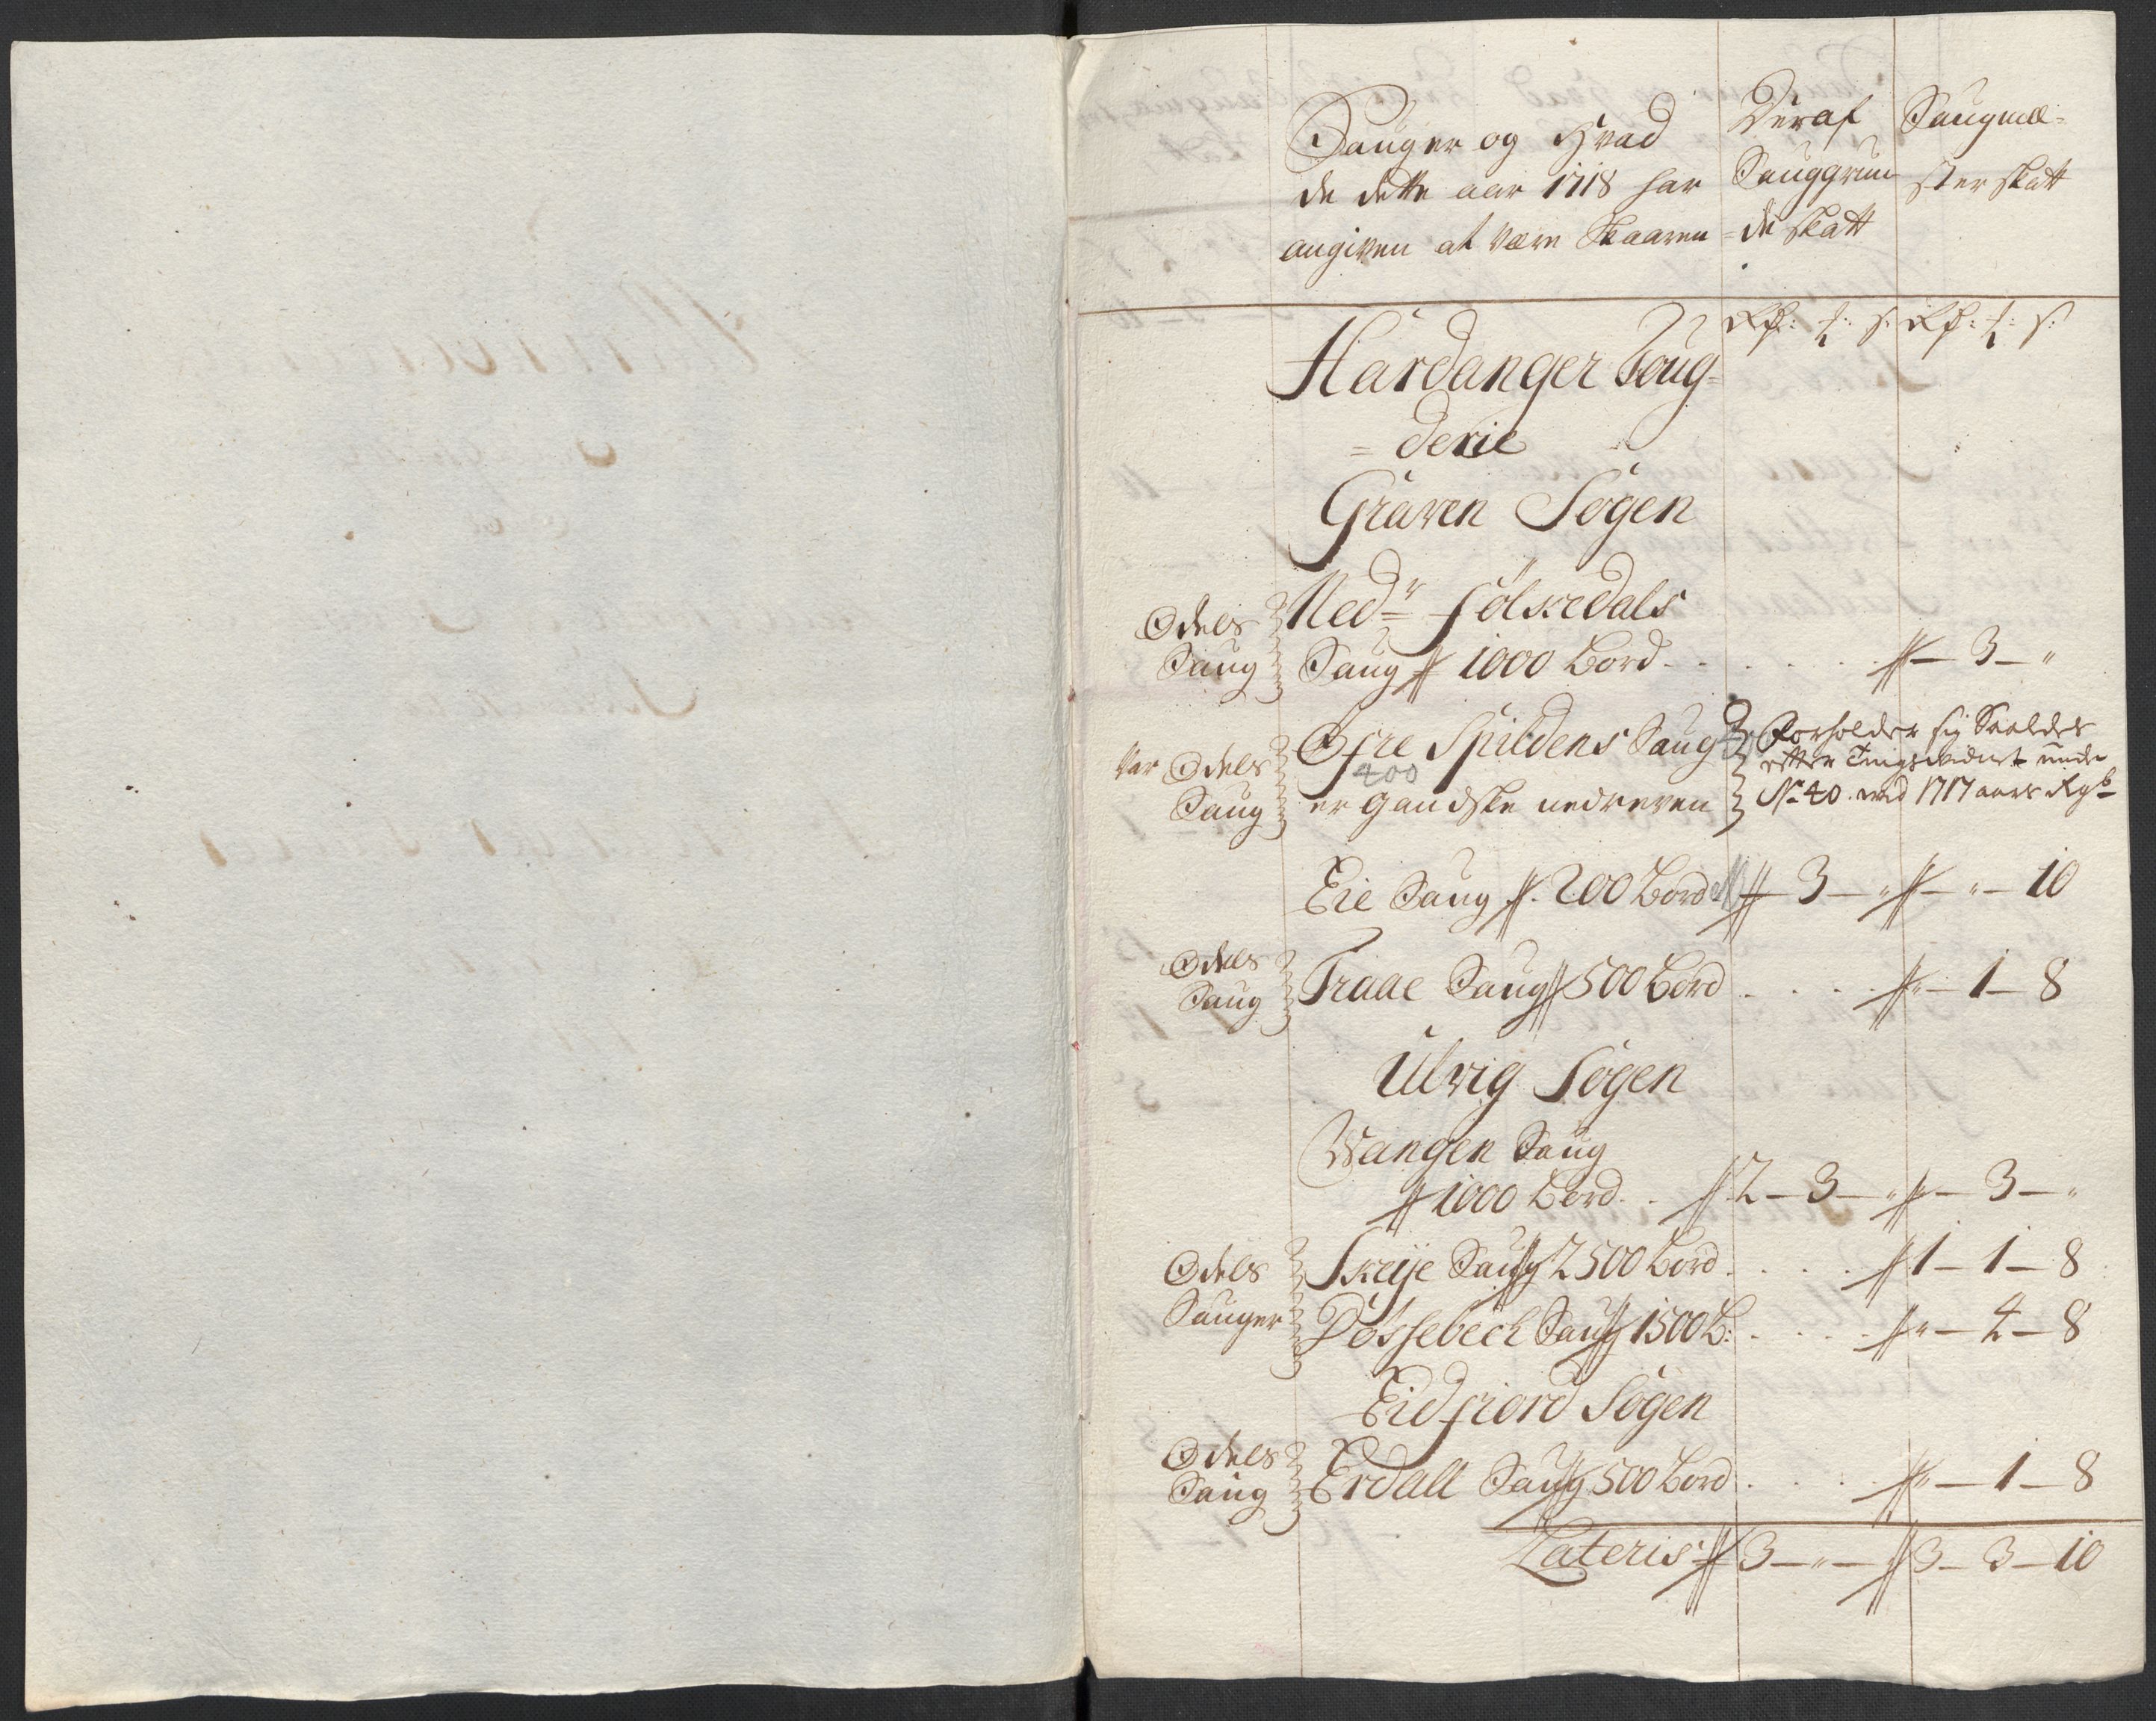 Sauger og Hvad
de dette aar 1718 har
angiven at være Skaaren
Deraf
Sauggrun
=de skatt
Saugmæ=
ster skatt
Rdr: f: s: Rdr: f: s:
Hardanger Foug=
=derie
Graven Sogen
Odels
Saug
Nedr Følkedals
Saug // 1000 Bord - - . . . . // - 3 - "
Var Odels
Saug
Øfre Spildens Saug
400
er gandske nedreven
Forholder sig Saaledes
efter Tingsvidnet under
No 40. ved 1717 aars Rgb
Eie Saug //. 200 Bord // - 3 - " // - " - 10
Odels
Saug
Traae Saug // 500 Bord . . . . // " - 1 - 8
Ulvig Sogen
Wangen Saug
// 1000 Bord. . // 2 - 3 - " // - 3 - "
Odels
Sauger
Skeije Saug // 2500 Bord . . . . // 1 - 1 - 8
Døssebech Saug // 1500 B: . . . . // " - 4 - 8
Eidfiord Sogen
Odels
Saug
Erdall Saug // 500 Bord . . . . // " - 1 - 8
Lateris // 3 - " - // 3 - 3 - 10